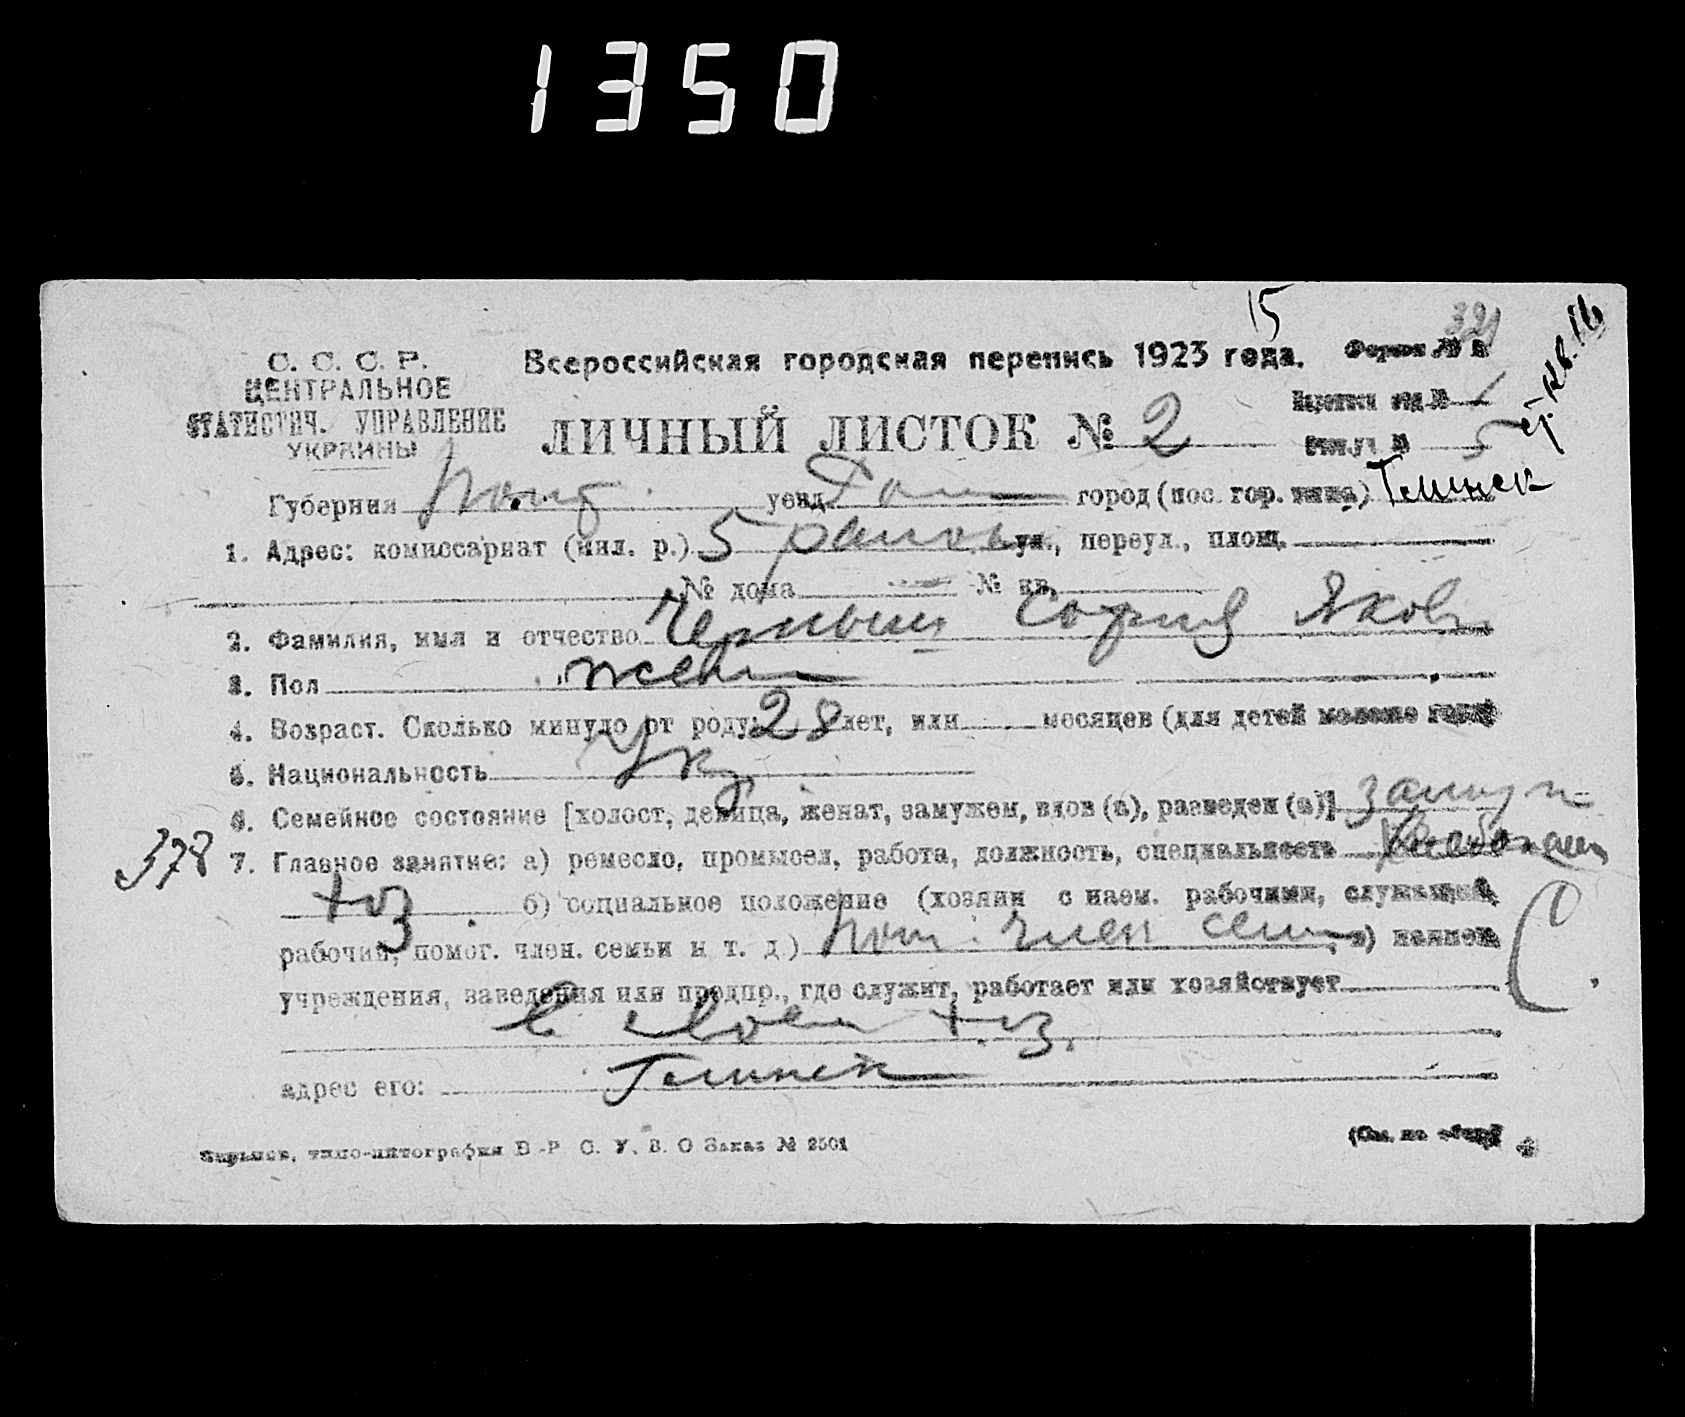 1350
15
32
С. С. С. Р.
ЦЕНТРАЛЬНОЕ
СТАТИСТИЧ. УПРАВЛЕНИЕ
УКРАИНЫ
Всероссийская городская перепись 1923 года.
Форма № В
ЛИЧНЫЙ ЛИСТОК № 2
Переписн отд № 1
№ 5
Губерния Полт. уезд Гол город (пос. гор. типа)
1. Адрес: комиссариат (мил. р.) 5 район ул., переул., площ.
№ дома № кв.
2. Фамилия, имя и отчество Черныш София Яковл
3. Пол жен
4. Возраст. Сколько минуло от роду: 28 лет, или месяцев (для детей моложе года)
5. Национальность Укр
6. Семейное состояние [холост, девица, женат, замужем, вдов (а), разведен (а)] замуж
378
7. Главное занятие: а) ремесло, промысел, работа, должность, специальность
хоз б) социальное положение (хозяин с наем. рабочими, служащий,
рабочий, помог. член. семьи и т. д.) пом. член семьи, в) наимен.
учреждения, заведения или предпр., где служит, работает или хозяйствует
в своем хоз.
адрес его:
типо-литография В-Р С. У. В. О Заказ № 2501
(См. на обор)